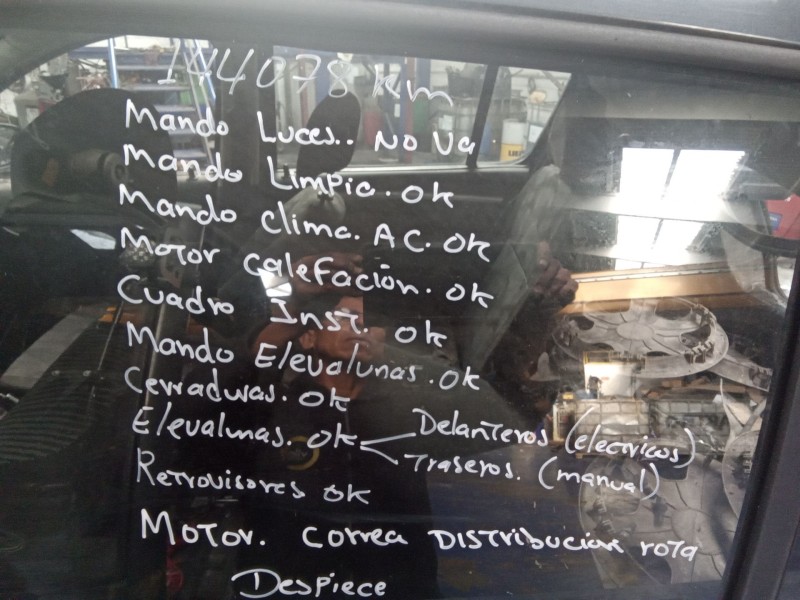 144078 km
Mando Luces.. NO Va
Mando Limpia. OK
Mando Clima. A.C. OK
Motor Calefación. OK
Cuadro Inst. OK
Mando Elevalunas. OK
Cerraduras. OK
Elevalunas. OK Delanteros (electricos)
Traseros. (manual)
Retrovisores OK
Motor. Correa Distribucion rota
Despiece